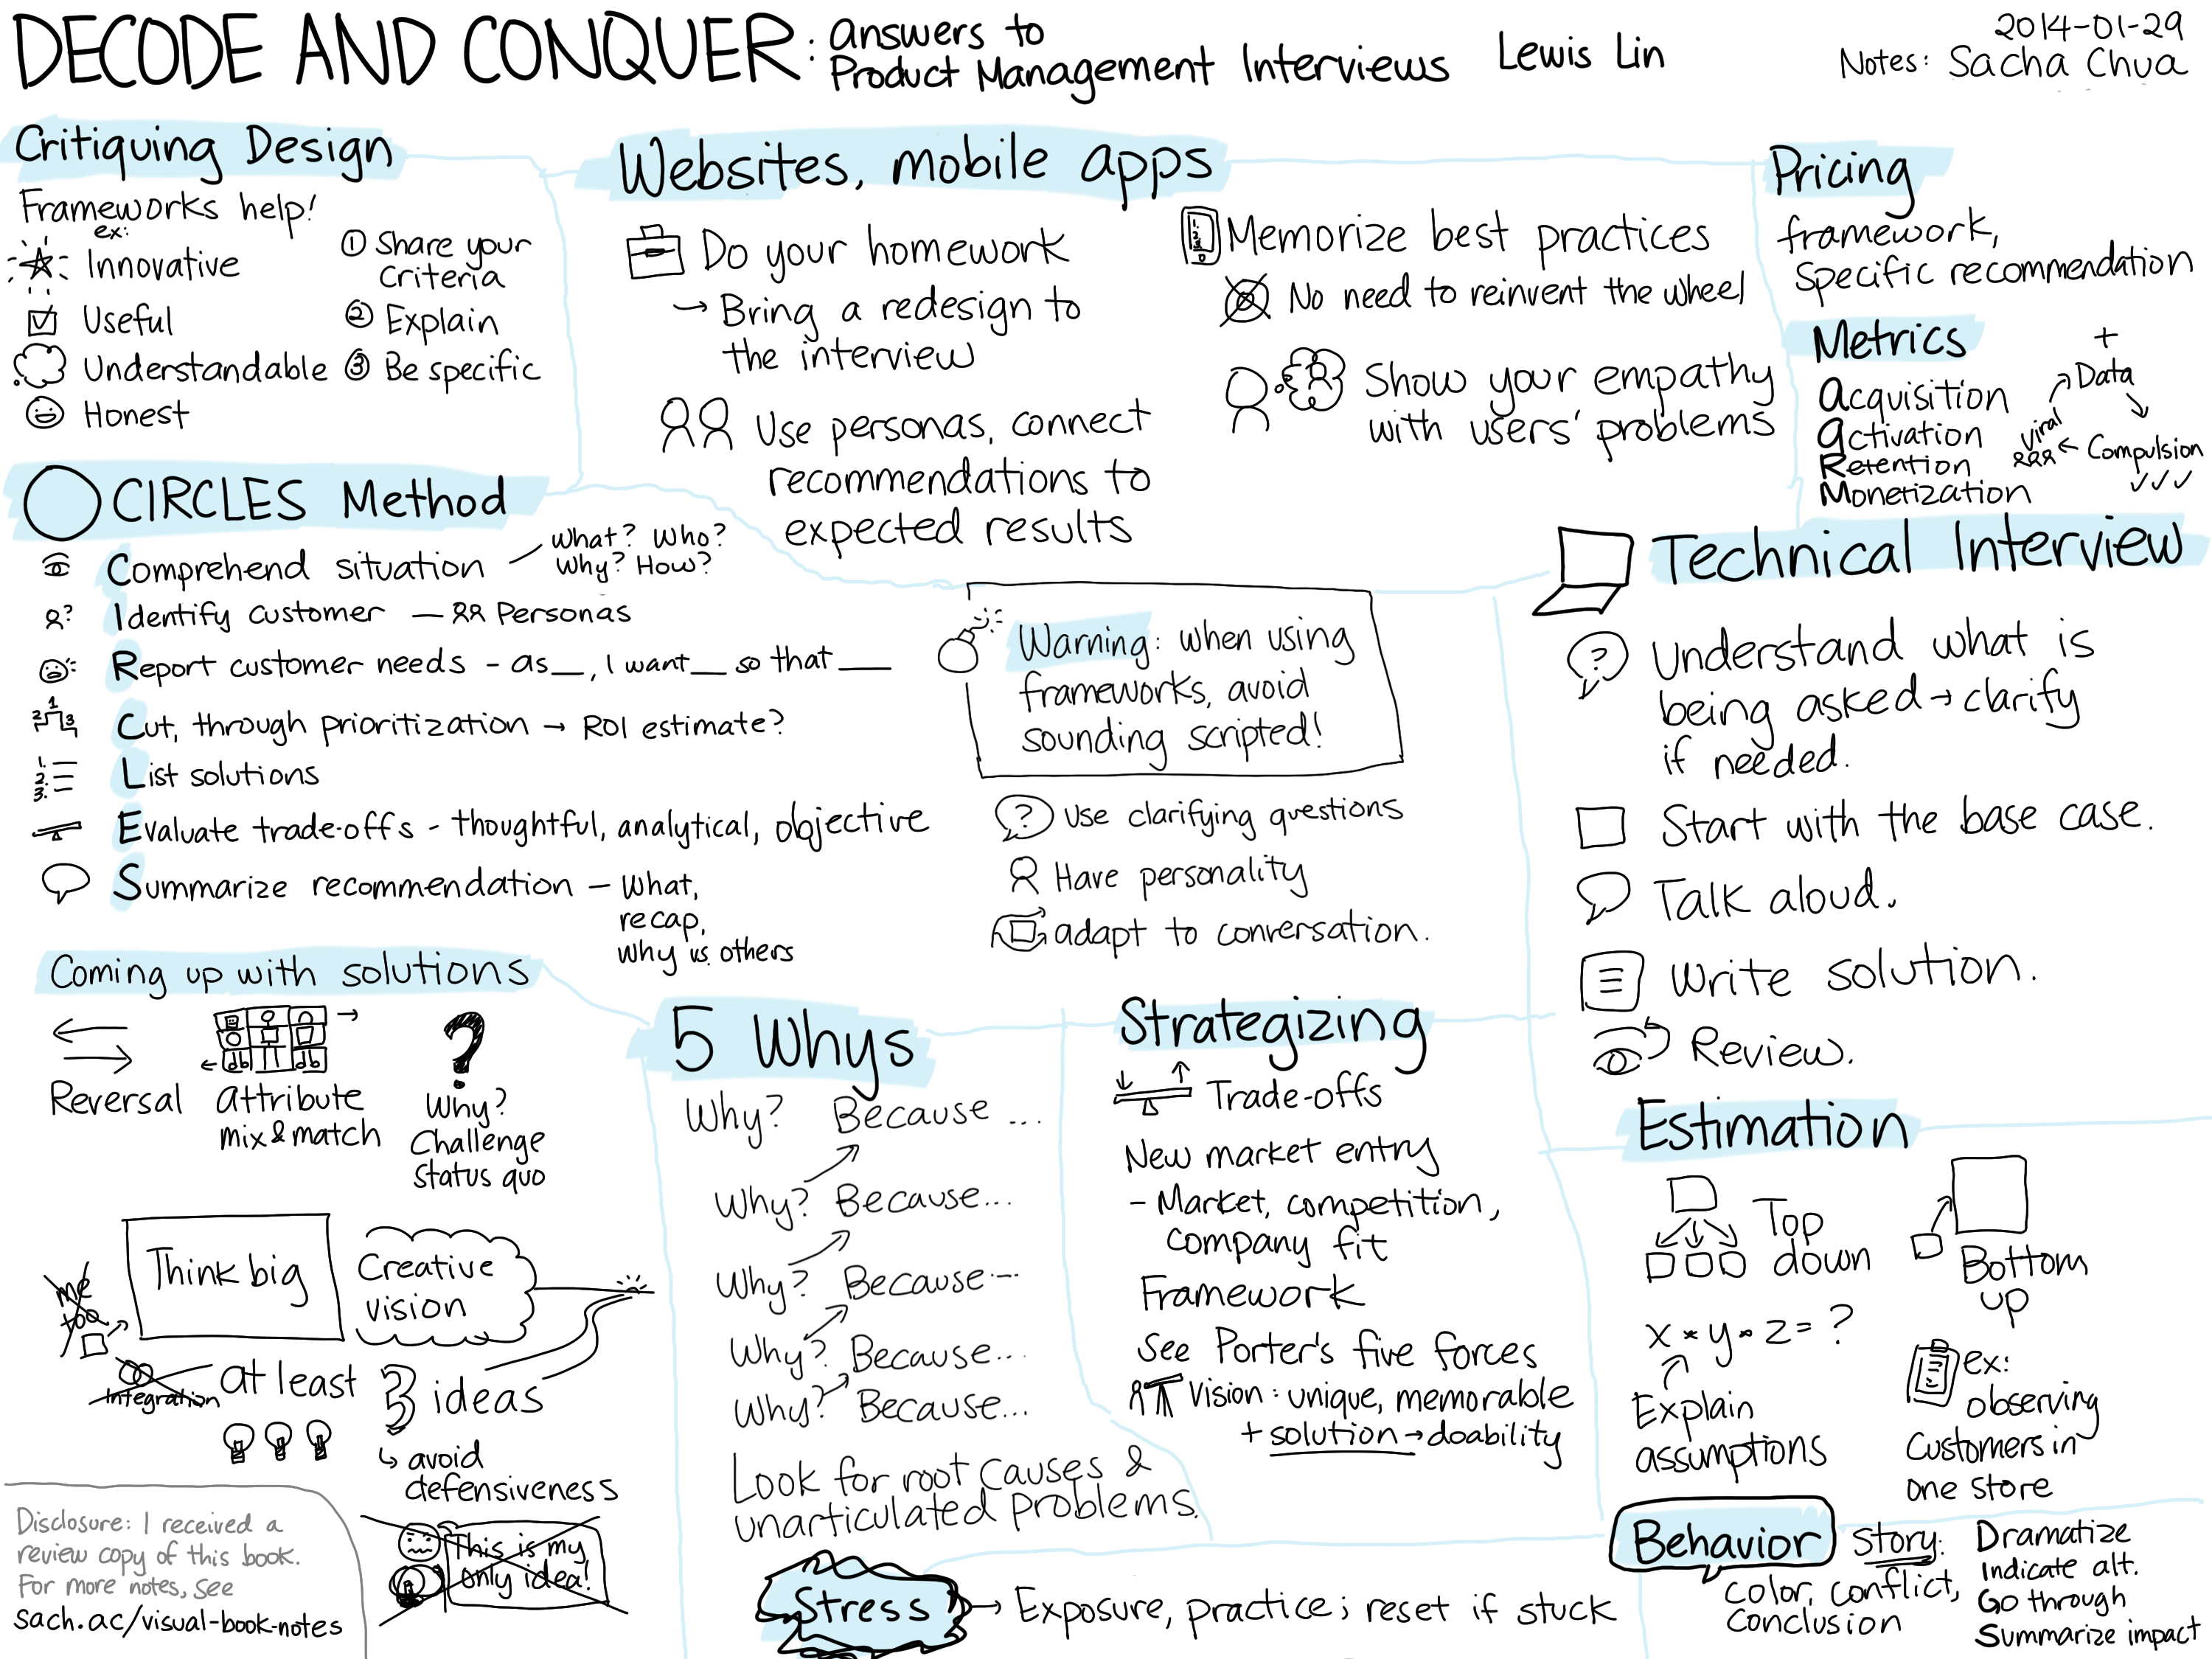 DECODE AND CONQUER: answers to
Product Management Interviews
Lewis Lin
2014-01-29
Notes: Sacha Chua
Critiquing Design
Frameworks help!
ex:
Innovative
Useful
Understandable
Honest
① Share your
criteria
② Explain
③ Be specific
Websites, mobile apps
Do your homework
→ Bring a redesign to
the interview
Use personas, connect
recommendations to
expected results
Memorize best practices
No need to reinvent the wheel
Show your empathy
with users' problems
Pricing
framework,
specific recommendation
Metrics
Acquisition
Activation
Retention
Monetization
+
Data
Compulsion
viral
CIRCLES Method
Comprehend situation
What? Who?
Why? How?
Identify customer — Personas
Report customer needs - as__, I want__ so that ___
1
2 3
Cut, through prioritization → ROI estimate?
1.
2.
3.
List solutions
Evaluate trade-offs - thoughtful, analytical, objective
Summarize recommendation — What,
recap,
Why vs. others
Warning: when using
frameworks, avoid
sounding scripted!
? Use clarifying questions
Have personality
adapt to conversation.
Technical Interview
? Understand what is
being asked → clarify
if needed.
Start with the base case.
Talk aloud.
Write solution.
Review.
Coming up with solutions
Reversal
attribute
mix & match
?
Why?
Challenge
status quo
Think big
me
too
Integration
Creative
vision
at least 3 ideas
↳ avoid
defensiveness
This is my
only idea!
5 Whys
Why? Because ...
Why? Because...
Why? Because...
Why? Because...
Why? Because...
Look for root causes &
unarticulated problems.
Strategizing
Trade-offs
New market entry
- Market, competition,
company fit
Framework
See Porter's five forces
Vision: unique, memorable
+ solution → doability
Estimation
Top
down
Bottom
up
x * y * z = ?
Explain
assumptions
ex:
observing
customers in
one store
Disclosure: I received a
review copy of this book.
For more notes, see
sach.ac/visual-book-notes
Stress → Exposure, practice; reset if stuck
Behavior
Story:
color, conflict,
conclusion
Dramatize
Indicate alt.
Go through
Summarize impact